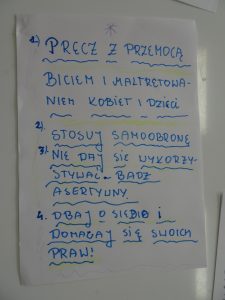 1) PRĘCZ Z PRZEMOCĄ
BICIEM I MALTRĘTOWA-
NIEM KOBIET I DZIECI
2) STOSUJ SAMOOBRONĘ
3) NIE DAJ SIĘ WYKORZY-
STYWAĆ - BĄDŹ
ASERTYWNY.
4. DBAJ O SIEBIE I
DOMAGAJ SIĘ SWOICH
PRAW!